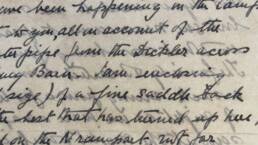 have been happening in the camp
to you all in account of the
pipe from the Deckler across
Barn. I am enclosing
size) of a fine saddle back
the best that has turned up here,
on the N rampart, not far